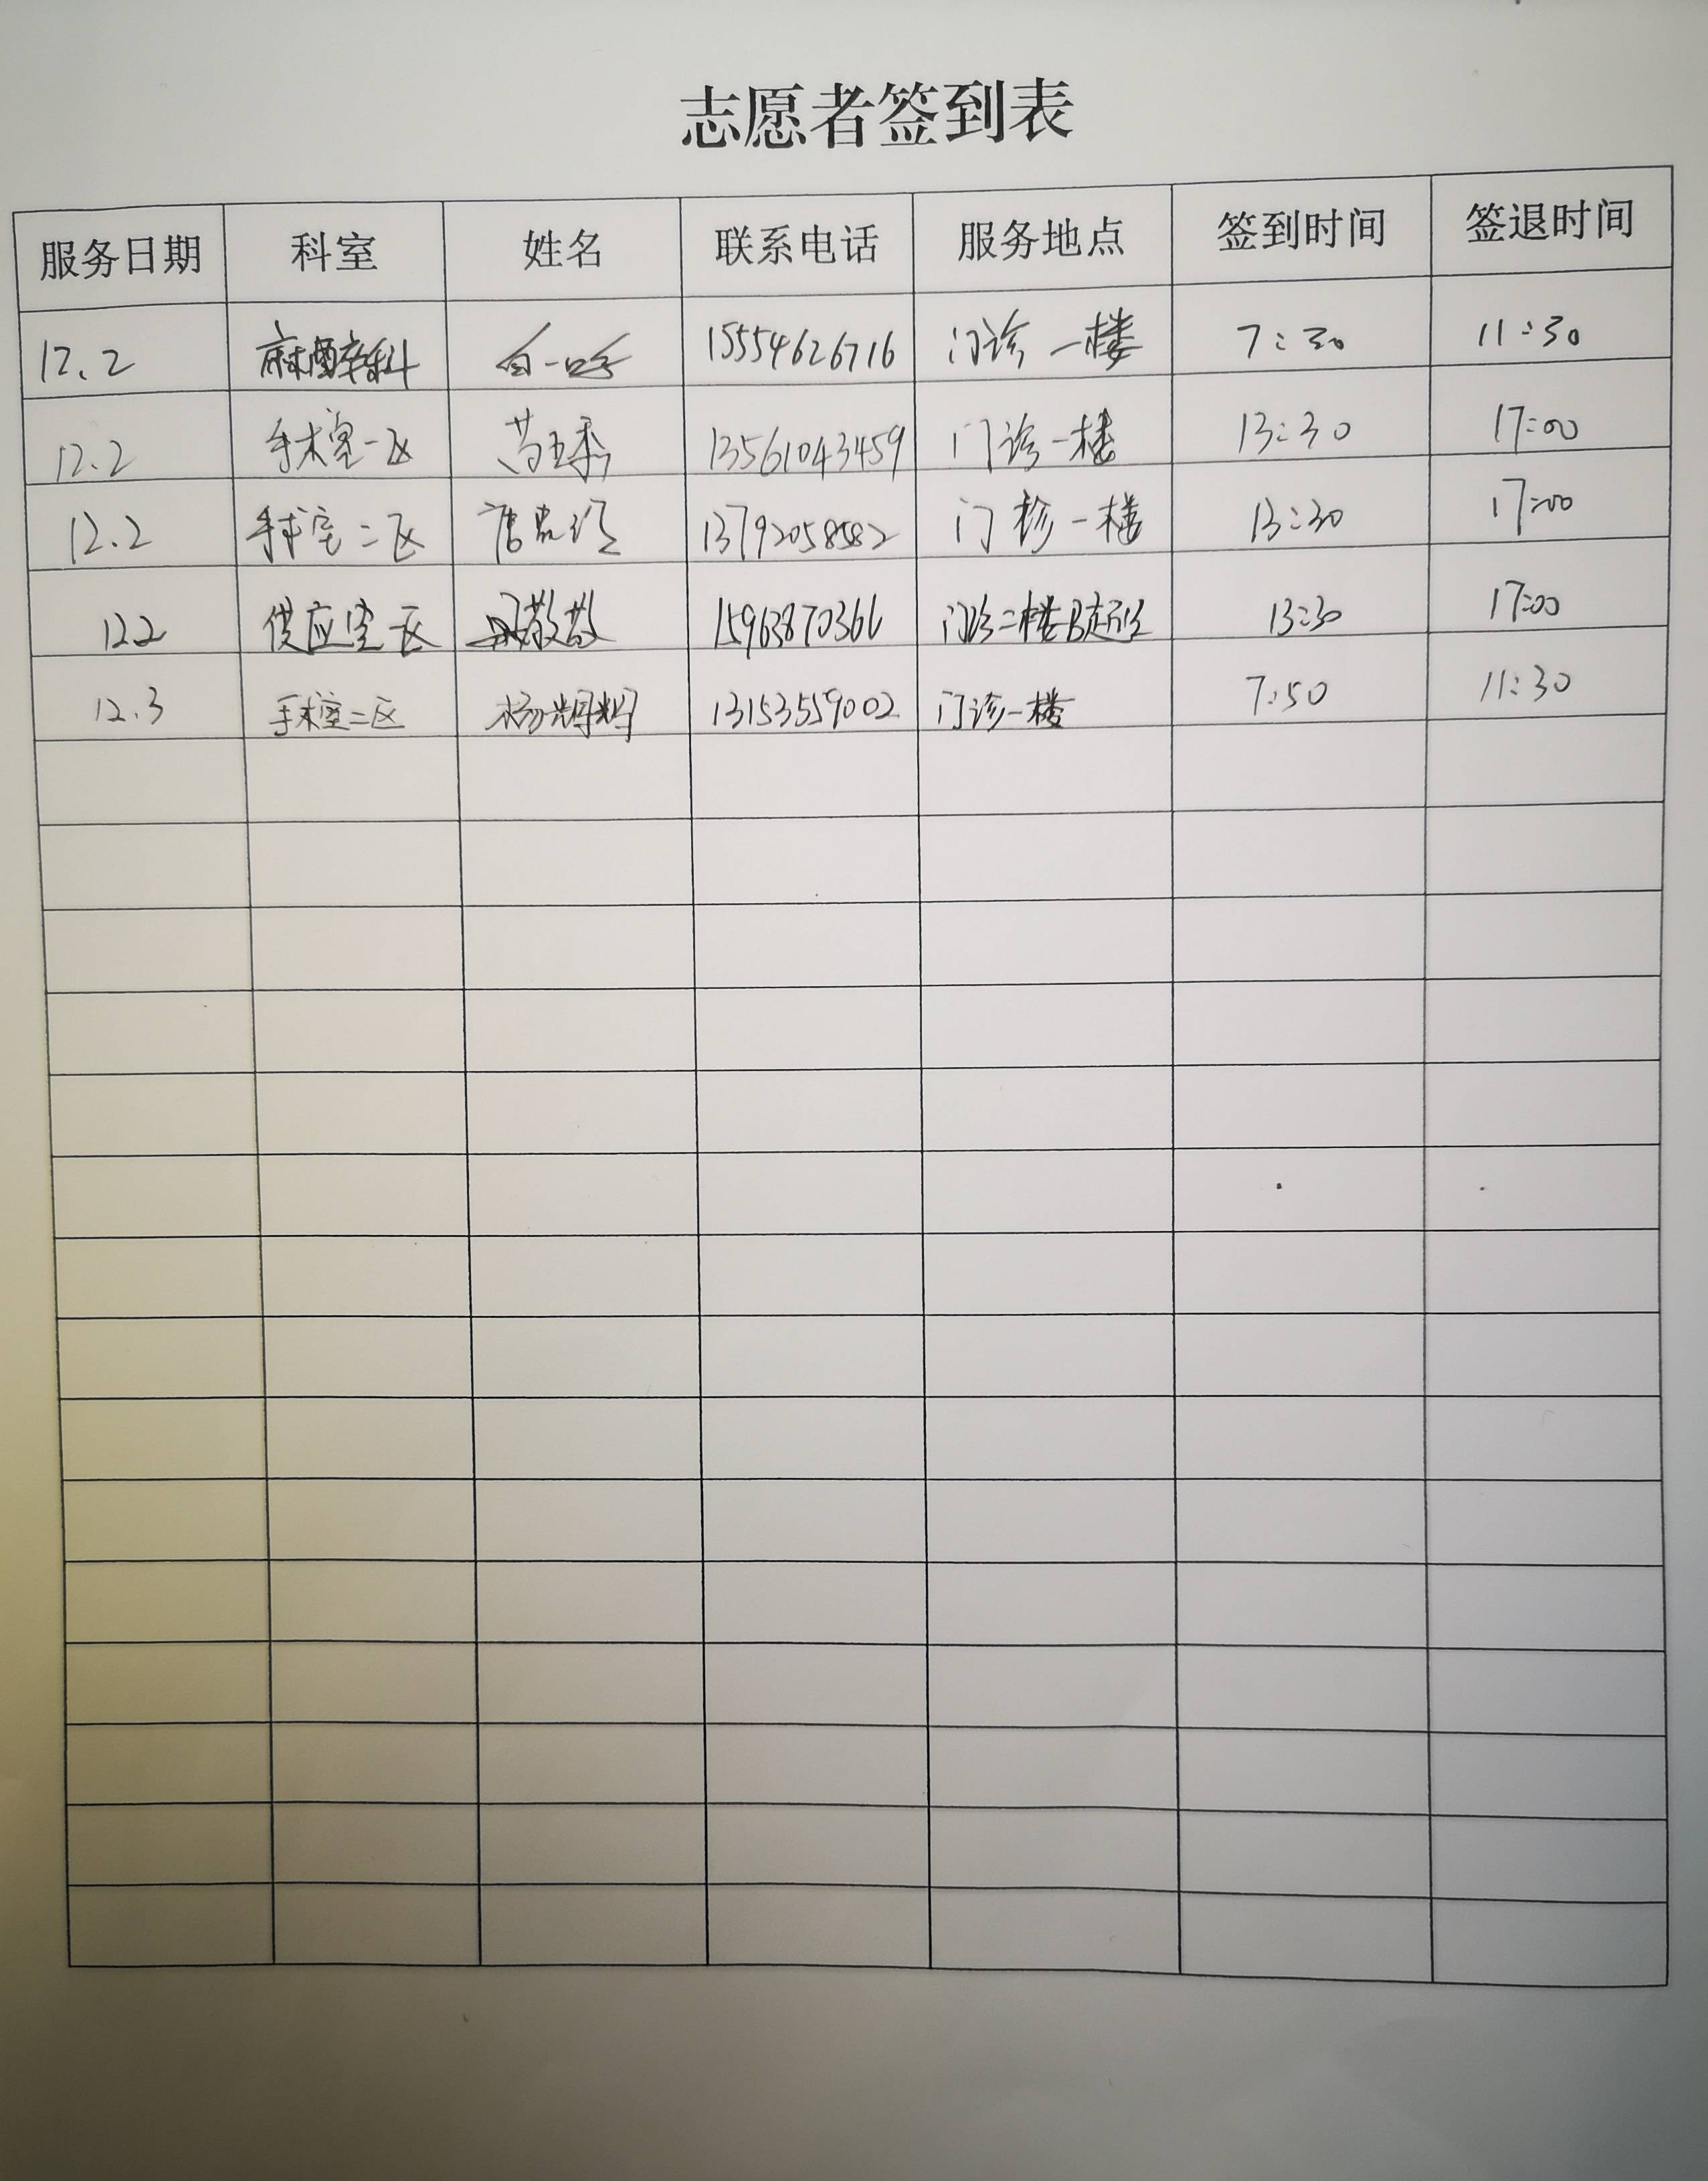 志愿者签到表
服务日期 科室 姓名 联系电话 服务地点 签到时间 签退时间
12.2 麻醉科 15554626716 门诊一楼 7:30 11:30
12.2 手术室一区 13561043459 门诊一楼 13:30 17:00
12.2 手术室二区 13792058582 门诊一楼 13:30 17:00
12.2 供应室一区 15963870366 门诊二楼B超 13:30 17:00
12.3 手术室二区 杨 13153559002 门诊一楼 7:50 11:30